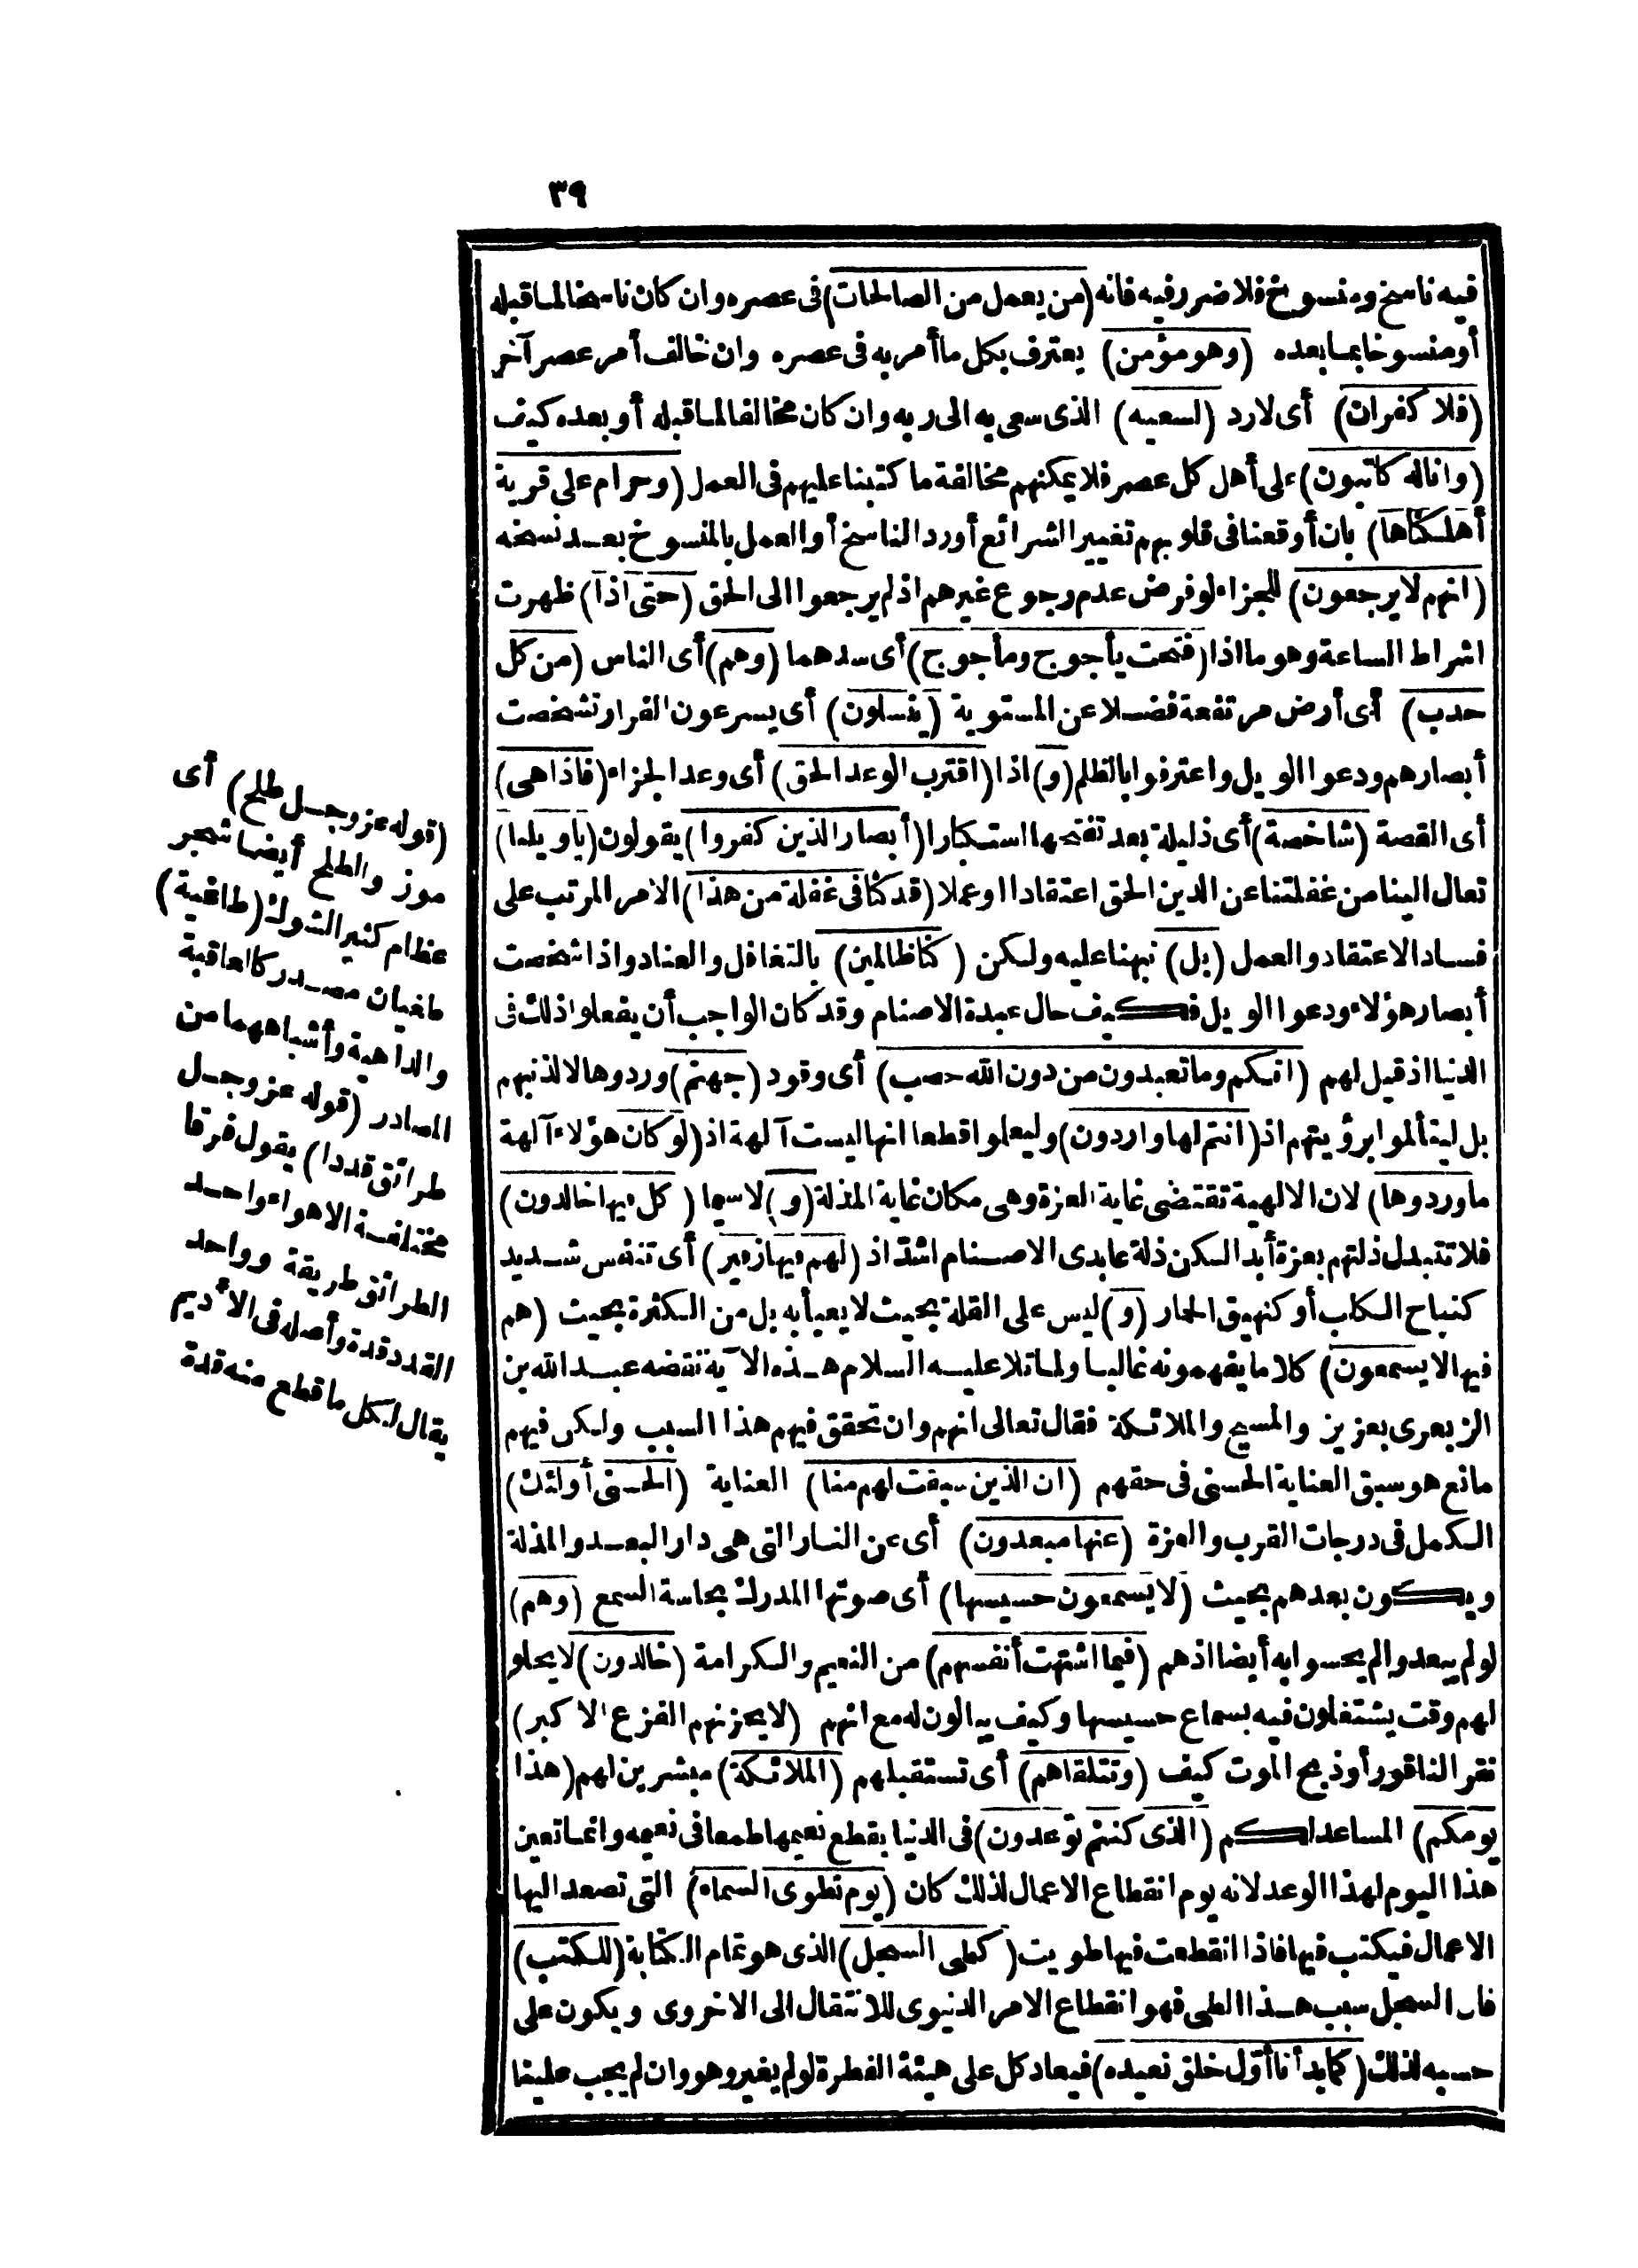 ٣٩
فيه ناسخ ومنسوخ فلا ضرر فيه فانه (من يعمل من الصالحات) فى عصره وان كان ناسخا لما قبله
أو منسوخا بما بعده (وهو مؤمن) يعترف بكل ما أمر به فى عصره وان خالف أمر عصر آخر
(فلا كفران) أى لارد (لسعيه) الذى سعى به الى ربه وان كان مخالفا لما قبله أو بعده كيف
(وانا له كاتبون) على أهل كل عصر فلا يمكنهم مخالفة ما كتبنا عليهم فى العمل (وحرام على قرية
أهلكناها) بان أوقعنا فى قلوبهم تغيير الشرائع أو رد الناسخ أو العمل بالمنسوخ بعد نسخه
(انهم لا يرجعون) للجزاء لو فرض عدم رجوع غيرهم اذ لم يرجعوا الى الحق (حتى اذا) ظهرت
اشراط الساعة وهو ما اذا (فتحت يأجوج ومأجوج) أى سدهما (وهم) أى الناس (من كل
حدب) أى أرض مرتفعة فضلا عن المستوية (ينسلون) أى يسرعون الفرار تشخصت
أبصارهم ودعوا الويل واعترفوا بالظلم (و) اذا (اقترب الوعد الحق) أى وعد الجزاء (فاذا هى)
أى القصة (شاخصة) أى ذليلة بعد تفتحها استكبارا (أبصار الذين كفروا) يقولون (ياويلنا)
تعال الينا من غفلتنا عن الدين الحق اعتقادا او عملا (قد كنا فى غفلة من هذا) الامر المرتب على
فساد الاعتقاد والعمل (بل) نبهنا عليه ولكن (كنا ظالمين) بالتغافل والعناد واذا شخصت
أبصار هؤلاء ودعوا الويل فكيف حال عبدة الاصنام وقد كان الواجب أن يفعلوا ذلك فى
الدنيا اذ قيل لهم (انكم وما تعبدون من دون الله حصب) أى وقود (جهنم) وردوها لا لذنبهم
بل ليتألموا برؤيتهم اذ (انتم لها واردون) وليعلوا قطعا انها ليست آلهة اذ (لو كان هؤلاء آلهة
ما وردوها) لان الالهية تقتضى غاية العزة وهى مكان غاية المذلة (و) لا سيما (كل فيها خالدون)
فلا تتبدل ذلتهم بعزة أبدا لكن ذلة عابدى الاصنام اشد اذ (لهم فيها زفير) أى تنفس شديد
كنباح الكلاب أو كنهيق الحمار (و) ليس على القلة بحيث لا يعبأ به بل من الكثرة بحيث (هم
فيها لا يسمعون) كلاما يفهمونه غالبا ولما تلا عليه السلام هذه الآية نقضه عبد الله بن
الزبعرى بعزيز والمسيح والملائكة فقال تعالى انهم وان تحقق فيهم هذا السبب ولكن فيهم
مانع هو سبق العناية الحسنى فى حقهم (ان الذين سبقت لهم منا) العناية (الحسنى أولئك)
الكمل فى درجات القرب والعزة (عنها مبعدون) أى عن النار التى هى دار البعد والمذلة
ويكون بعدهم بحيث (لا يسمعون حسيسها) أى صوتها المدرك بحاسة السمع (وهم)
لو لم يبعدوا لم يحسوا به أيضا اذ هم (فيما اشتهت أنفسهم) من النعيم والكرامة (خالدون) لا يخلو
لهم وقت يشتغلون فيه بسماع حسيسها وكيف يبالون له مع انهم (لا يحزنهم الفزع الاكبر)
نقر الناقور أو ذبح الموت كيف (وتتلقاهم) أى تستقبلهم (الملائكة) مبشرين لهم (هذا
يومكم) المساعد لكم (الذى كنتم توعدون) فى الدنيا بقطع نعيمها طمعا فى نعيمه وانما تعين
هذا اليوم لهذا الوعد لانه يوم انقطاع الاعمال لذلك كان (يوم نطوى السماء) التى تصعد اليها
الاعمال فيكتب فيها فاذا انقطعت فيها طويت (كطى السجل) الذى هو تمام الكتابة (للكتب)
فان السجل سبب هذا الطى فهو انقطاع الامر الدنيوى للانتقال الى الاخروى ويكون على
حسبه لذلك (كما بدأنا أول خلق نعيده) فيعاد كل على هيئة الفطرة لو لم يغير وهو وان لم يجب علينا
(قوله عز وجل طلح) أى
موز والطلح أيضا شجر
عظام كثير الشوك (طاغية)
طغيان مصدر كالعاقبة
والداهية وأشباههما من
المصادر (قوله عز وجل
طرائق قددا) يقول فرقا
مختلفة الاهواء واحد
الطرائق طريقة وواحد
القدد قدة وأصله فى الأديم
يقال لكل ما قطع منه قدة